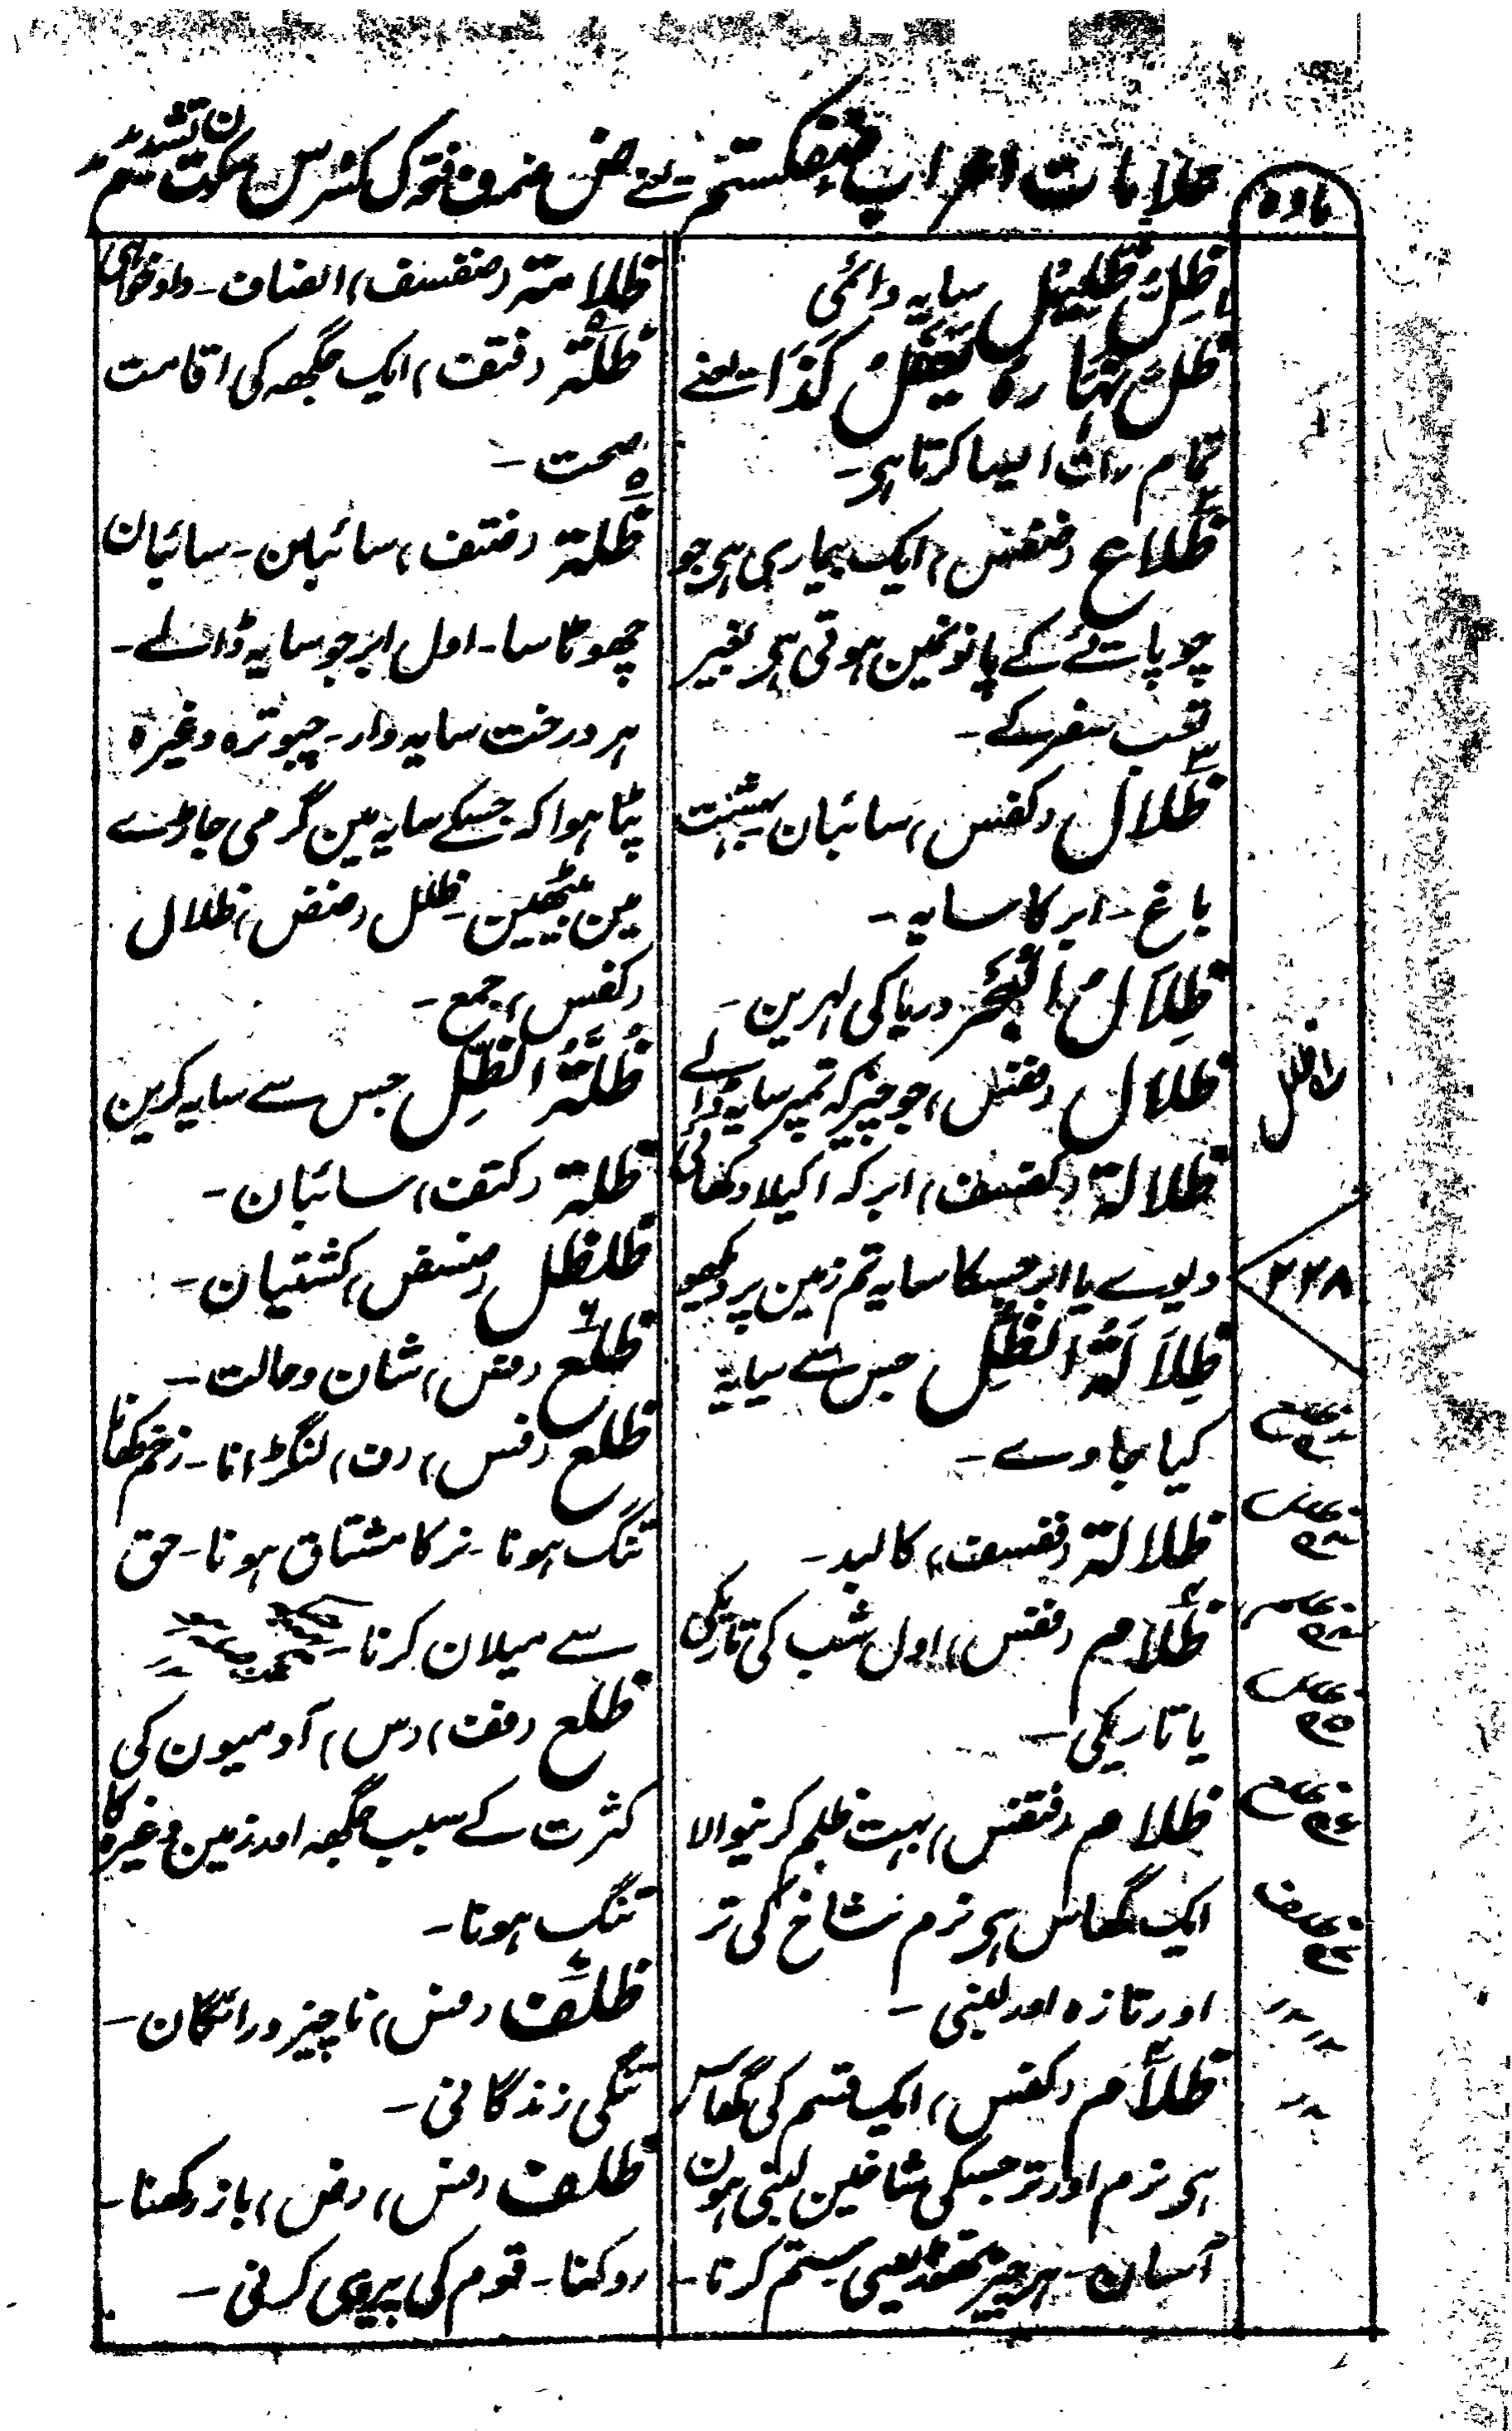 علامات اعراب ضفکستم یعنے ض ضمہ ف فتحہ ک کسرہ س سکون ت تشدید م مد
مادہ
ظِلٌّ ظَلِیْل سایہ دائمی
ظَلَّ نَہَارَہٗ یَفْعَلُ کَذَا یعنے
تمام رات ایسا کرتا ہی۔
ظلاع (ضفس) ایک بیماری ہی جو
چوپائے کے پانونمین ہوتی ہی بغیر
تعب سفر کے۔
ظلال (کفس) سائبان بہشت
باغ۔ ابر کا سایہ۔
ظِلَالُ الْبَحْر دریا کی لہرین۔
ظلال جو چیز کہ تمپر سایہ ڈالے
ظلالة (کفسف) ابر کہ اکیلا دکھائی
دیوے یا ابر جسکا سایہ تم زمین پر دیکھو
ظِلَالَةُ الظِّل جس سے سایہ
کیا جاوے۔
ظلالة (فسف) کالبد۔
ظلام (ففس) اول شب کی تاریکی
یا تاریکی۔
ظلام (فتفس) بہت ظلم کرنیوالا
ایک گھاس ہی نرم شاخ کی تر
اور تازہ اور لنبی۔
ظلام (کفس) ایک قسم کی گھاس
ہی نرم اور تر جسکی شاخین لنبی ہون
آسان۔ ہر چیز تھوڑیسی ستم کرنا۔
ظلامة (ضفسف) انصاف۔ دادخواہی
ظلة (فتف) ایک جگھہ کی اقامت
صحت۔
ظلة (ضتف) سائبان۔ سائبان
چھوٹا سا۔ اول ابر جو سایہ ڈالے۔
ہر درخت سایہ دار۔ چبوترہ وغیرہ
پٹا ہوا کہ جسکے سایہ مین گرمی جاڑے
مین بیٹھین۔ ظلل (ضفس) ظلال
(کفس) جمع۔
ظُلَّةُ الظِّل جس سے سایہ کرین
ظلة (کتف) سائبان۔
ظلظل (ضسفس) کشتیان۔
ظلع شان و حالت۔
ظلع (فس) (ف) لنگڑانا۔ زخم کھانا
تنگ ہونا۔ نر کا مشتاق ہونا۔ حق
سے میلان کرنا۔
ظلع (ففف) (س) آدمیون کی
کثرت کے سبب جگھہ اور زمین وغیرہ کا
تنگ ہونا۔
ظلف (فس) ناچیز و رائگان۔
تنگی زندگانی۔
ظلف (فس) (ض) باز رکھنا۔
روکنا۔ قوم کی پیروی کرنی۔
ظل
۲۲۸